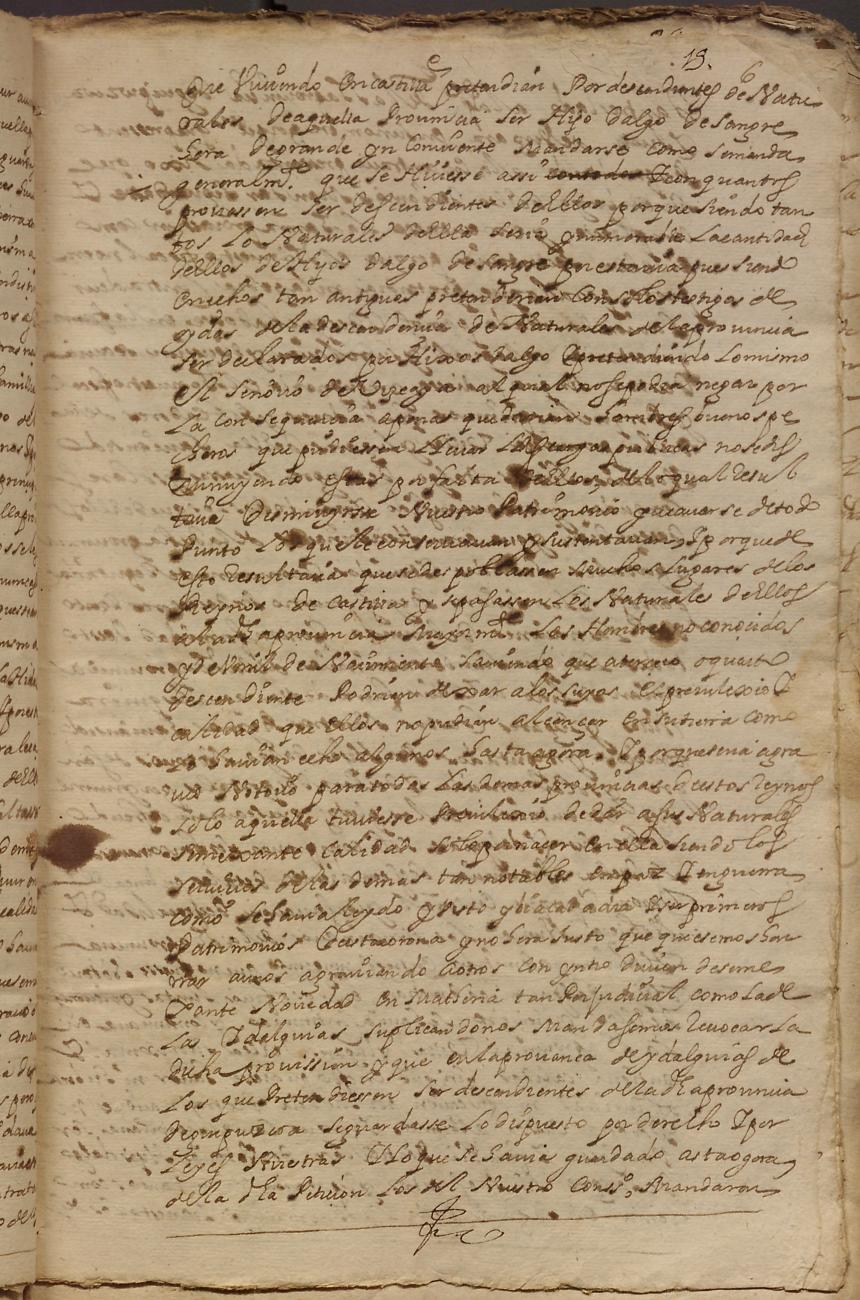 15.
que Viuiendo en castilla pretendian Por descendientes de Natu
rales de aquella Prouincia ser Hijo dalgo de sangre
hera de grande ynconuiniente mandarse como se manda
generalmte que se Hiciesse assi con todos Y con quantos
prouassen ser descendientes de Ellos porque siendo tan
tos Lo Naturales della seria ynumerable La cantidad
de Ellos de Hijos dalgo de sangre
en echos tan antiguos pretenderian con solos testigos de
oydas de la descendencia de Naturales de la prouincia
ser declarados por Hixos dalgo Y pretendiendo lo mismo
el señorio de Vizcaya al qual no se podia negar por
La consequencia apenas quedarian hombres buenos pe
cheros que pudiessen lleuar Las cargas publicas no se dis
minuyendo estas por falta de Ellos, de lo qual Resul
taua Disminuyrse Nuestro Patrimonio y acauarse de todo
Punto Lo que le conseruauan y sustentauan, Y porque de
esto Resultaria que se despoblassen muchos lugares de los
Reynos de Castilla y se passassen Los Naturales de Ellos
a la dha prouincia mayormte Los Hombres no conocidos
y de Vmil de Nacimiento sauiendo que a tercero o quarto
descendiente Podrian dexar a los suyos el preuilexio Y
calidad que ellos no pudian alcançar en su tierra como
lo hauian echo algunos hasta agora. Y porque seria agra
uio Notorio para todas Las demas prouincias de estos Reynos
solo aquella tuuiesse Preuilexio de dar a sus Naturales
semexante calidad solo por nacer en ella siendo los
seruicios de las demas tan notables en paz Y en guerra
como se hauia leydo y visto
Patrimonios Desta corona y no hera Justo que quisiesemos hon
rrar a unos agrauiando a otros con yntroduzion de seme
xante Nouedad en materia tan Perjudicial como La de
Las Ydalguias suplicandonos mandasemos Reuocar La
dicha prouission y que en la prouanca de ydalguias de
Los que Pretendiessen ser descendientes de la dha prouincia
de guipuzcoa se guardasse Lo dispuesto por derecho Y por
Leyes Nuestras Y lo que se hauia guardado asta agora,
de la dha Peticion Los del Nuestro Consso, Mandaron